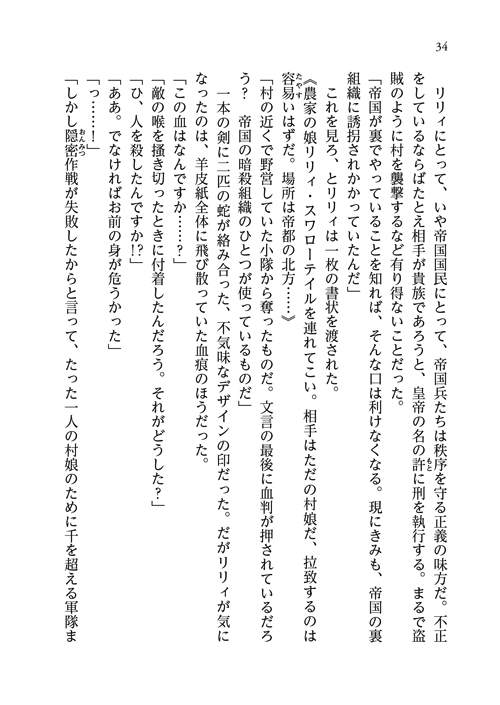 34
リリィにとって、いや帝国国民にとって、帝国兵たちは秩序を守る正義の味方だ。不正
をしているならばたとえ相手が貴族であろうと、皇帝の名の許に刑を執行する。まるで盗
賊のように村を襲撃するなど有り得ないことだった。
「帝国が裏でやっていることを知れば、そんな口は利けなくなる。現にきみも、帝国の裏
組織に誘拐されかかっていたんだ」
これを見ろ、とリリィは一枚の書状を渡された。
《農家の娘リリィ・スワローテイルを連れてこい。相手はただの村娘だ、拉致するのは
容易いはずだ。場所は帝都の北方……》
「村の近くで野営していた小隊から奪ったものだ。文言の最後に血判が押されているだろ
う？　帝国の暗殺組織のひとつが使っているものだ」
一本の剣に二匹の蛇が絡み合った、不気味なデザインの印だった。だがリリィが気に
なったのは、羊皮紙全体に飛び散っていた血痕のほうだった。
「この血はなんですか……？」
「敵の喉を掻き切ったときに付着したんだろう。それがどうした？」
「ひ、人を殺したんですか!?」
「ああ。でなければお前の身が危うかった」
「っ……！」
「しかし隠密作戦が失敗したからと言って、たった一人の村娘のために千を超える軍隊ま